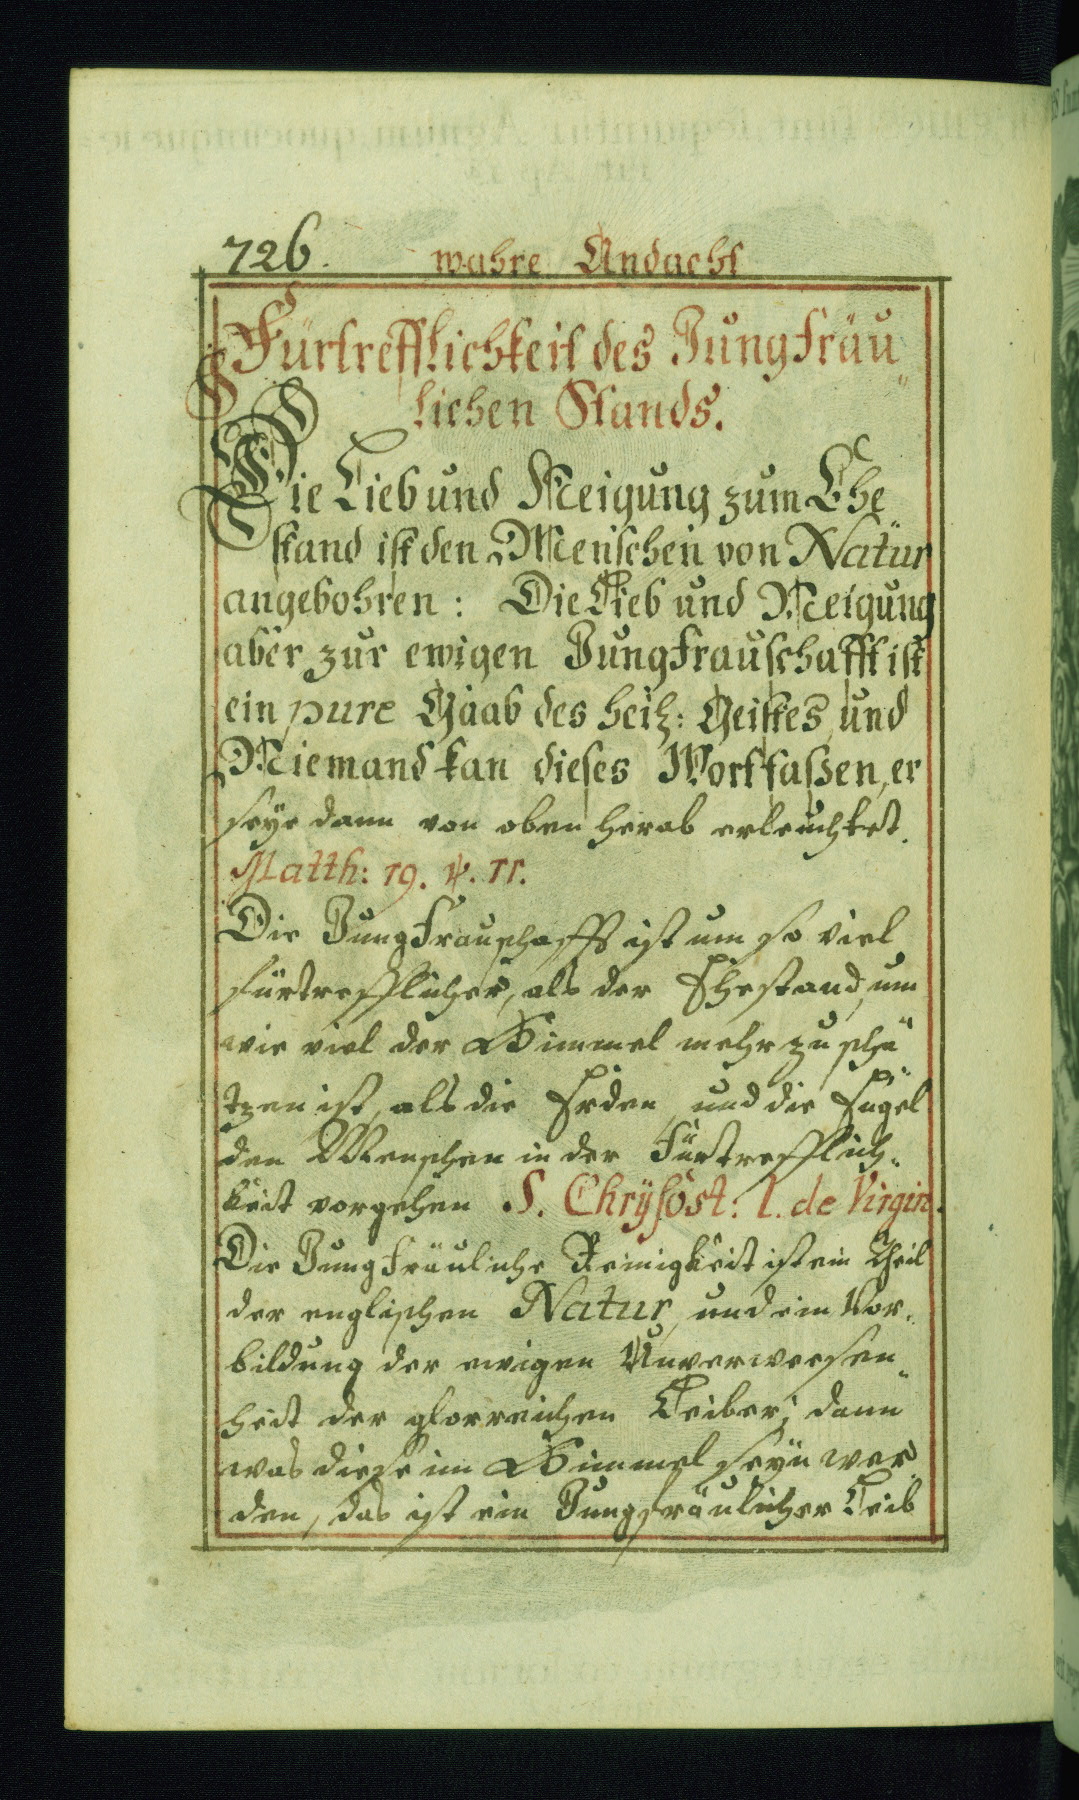 726. wahre Andacht
Fürtrefflichkeit des Jungfräu„
lichen Stands.
Die Lieb und Neigung zum Ehe
stand ist den Menschen von Natur
angebohren: Die Lieb und Neigung
aber zur ewigen Jungfrauschafft ist
ein pure Gaab des heil: Geistes, und
Niemand kan dieses Wort faßen, er
seye dann von oben herab erleuchtet.
Matth: 19. ℣. 11.
Die Jungfrauschafft ist um so viel
fürtrefflicher, als der Ehestand, um
wie viel der Himmel mehr zu schä„
tzen ist, als die Erden, und die Engel
den Menschen in der Fürtrefflich„
keit vorgehen S. Chrÿsost: l. de Virgin.
Die Jungfräuliche Reinigkeit ist ein Theil
der englischen Natur, und ein Vor„
bildung der ewigen Unverweesen„
heit der glorreichen Leiber; dann
was diese im Himmel seÿn wer„
den, das ist ein Jungfräulicher Leib